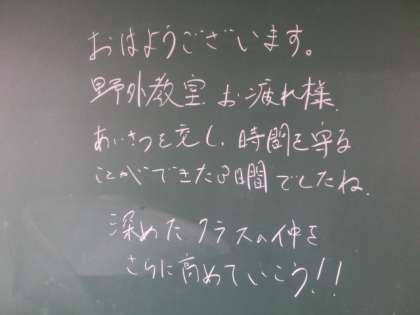 おはようございます。
野外教室お疲れ様.
あいさつを交し、時間を守る
ことができた3日間でしたね.
深めたクラスの仲を
さらに高めていこう!!